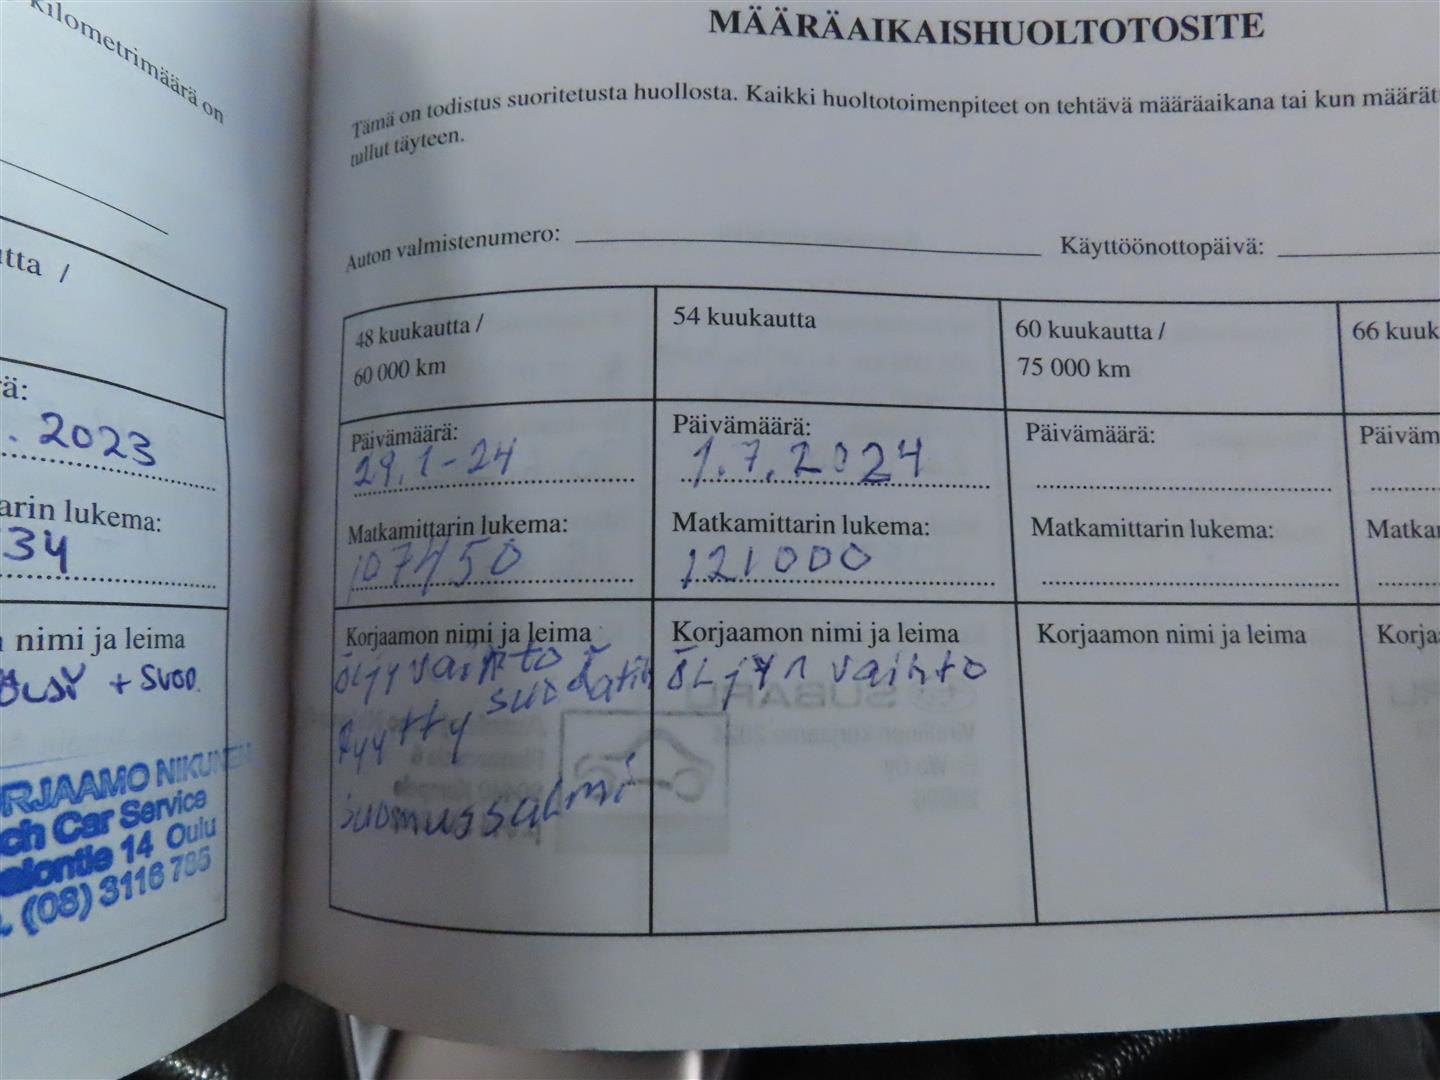 kilometrimäärä on
utta /
ä:
. 2023
arin lukema:
34
nimi ja leima
+ suod.
RJAAMO NIKUNEN
ch Car Service
14 Oulu
. (08) 3116 785
MÄÄRÄAIKAISHUOLTOTOSITE
Tämä on todistus suoritetusta huollosta. Kaikki huoltotoimenpiteet on tehtävä määräaikana tai kun määrät
tullut täyteen.
Auton valmistenumero:
Käyttöönottopäivä:
48 kuukautta /
60 000 km
Päivämäärä:
29.1-24
Matkamittarin lukema:
107450
Korjaamon nimi ja leima
öljyvaihto
suodatin
suomussalmi
54 kuukautta
Päivämäärä:
1.7.2024
Matkamittarin lukema:
121000
Korjaamon nimi ja leima
öljyn vaihto
SUBARU
60 kuukautta /
75 000 km
Päivämäärä:
Matkamittarin lukema:
Korjaamon nimi ja leima
66 kuuk
Päiväm
Matka
Korja